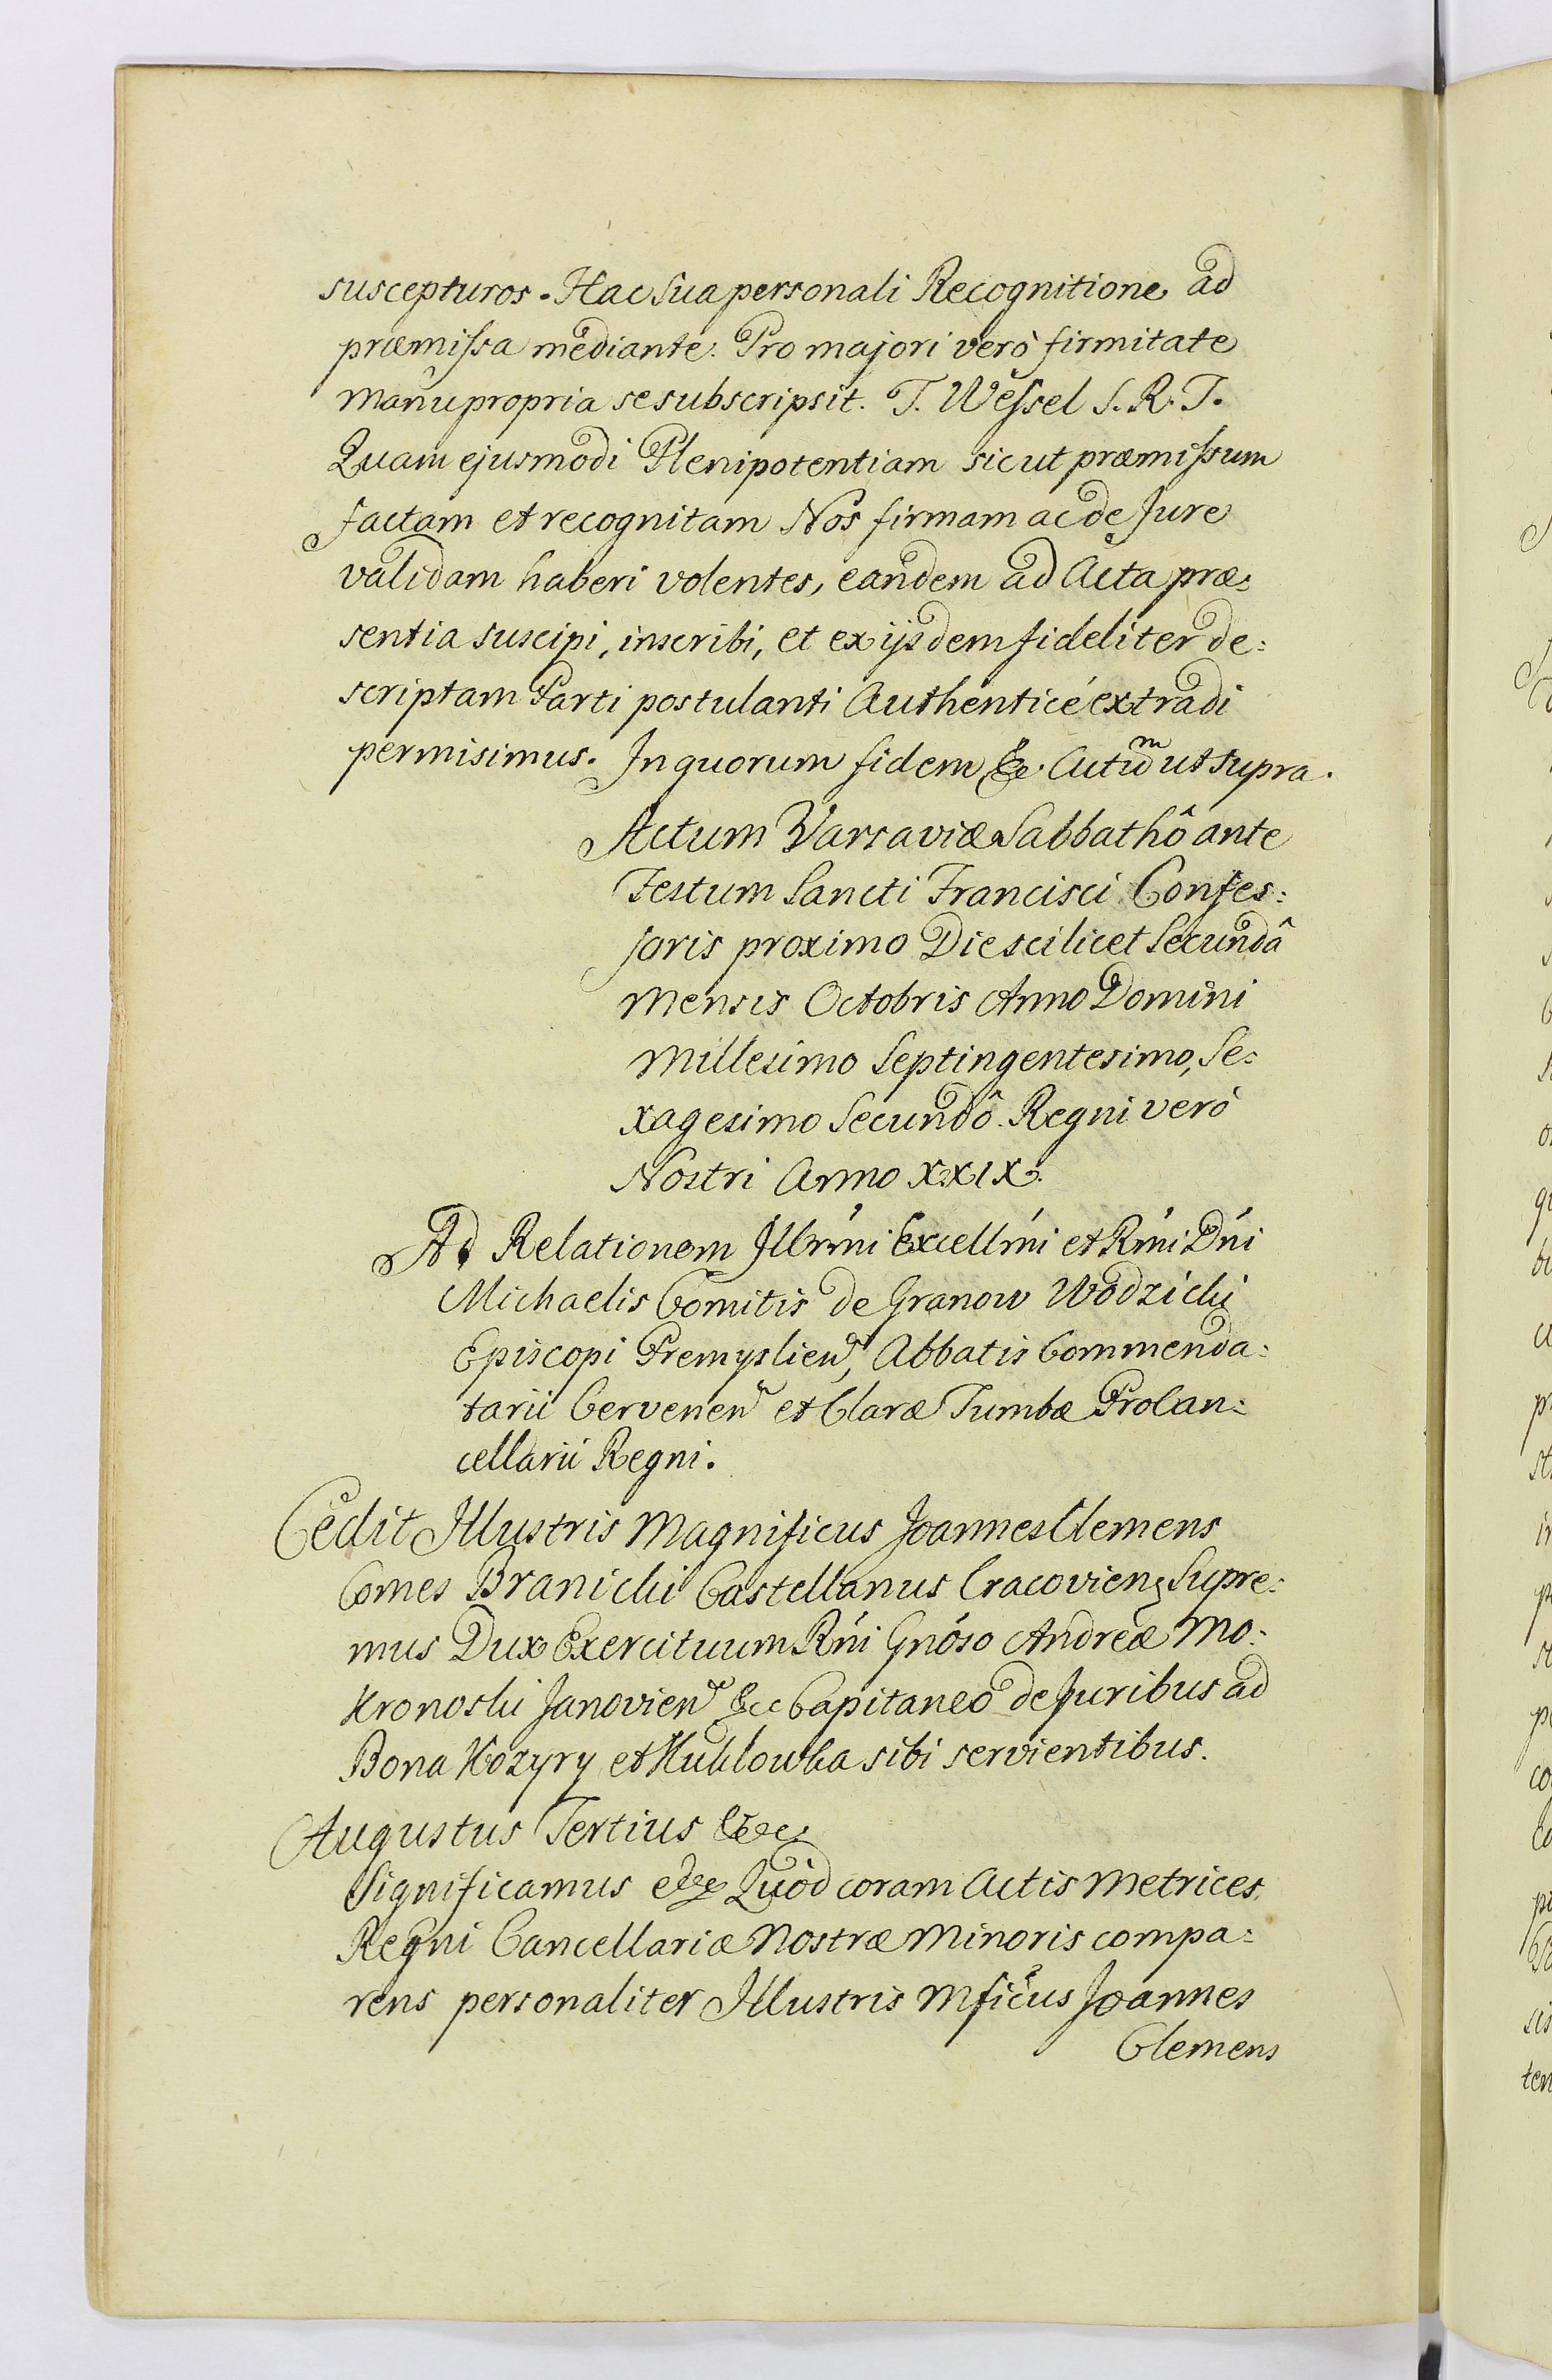 suscepturos. Hac sua personali Recognitione ad
præmissa mediante. Pro majori verò firmitate
manu propria se subscripsit. T. Wessel S. R. T.
Quam ejusmodi Plenipotentiam sicut præmissum
factam et recognitam Nos firmam ac de Jure
validam haberi volentes, eandem ad Acta præ:
sentia suscipi, inscribi, et ex ijsdem fideliter de:
scriptam Parti postulanti Authenticé extradi
permisimus. In quorum fidem &c. Actũ ut supra.
Actum Varsaviæ Sabbathô ante
Festum Sancti Francisci Confes:
soris proximo Die scilicet Secundâ
Mensis Octobris Anno Domini
Millesimo Septingentesimo, Se:
xagesimo Secundô. Regni verò
Nostri Anno XXIX.
Ad Relationem Illrmi Excellmi et Rmi Dni
Michaelis Comitis de Granow Wodzicki
Episcopi Premyslien, Abbatis Commenda:
tarii Cervenen et Claræ Tumbæ ProCan:
cellarii Regni.
Cedit Illustris Magnificus Joannes Clemens
Comes Branicki Castellanus Cracovien Supre:
mus Dux Exercituum Rni Gnóso Andreæ Mo:
kronoski Janovien &c Capitaneo de Juribus ad
Bona Kozyry et Kuklowka sibi servientibus.
Augustus Tertius &c
Significamus &c Quòd coram Actis Metrices
Regni Cancellariæ Nostræ Minoris compa:
rens personaliter Illustris Mficus Joannes
Clemens